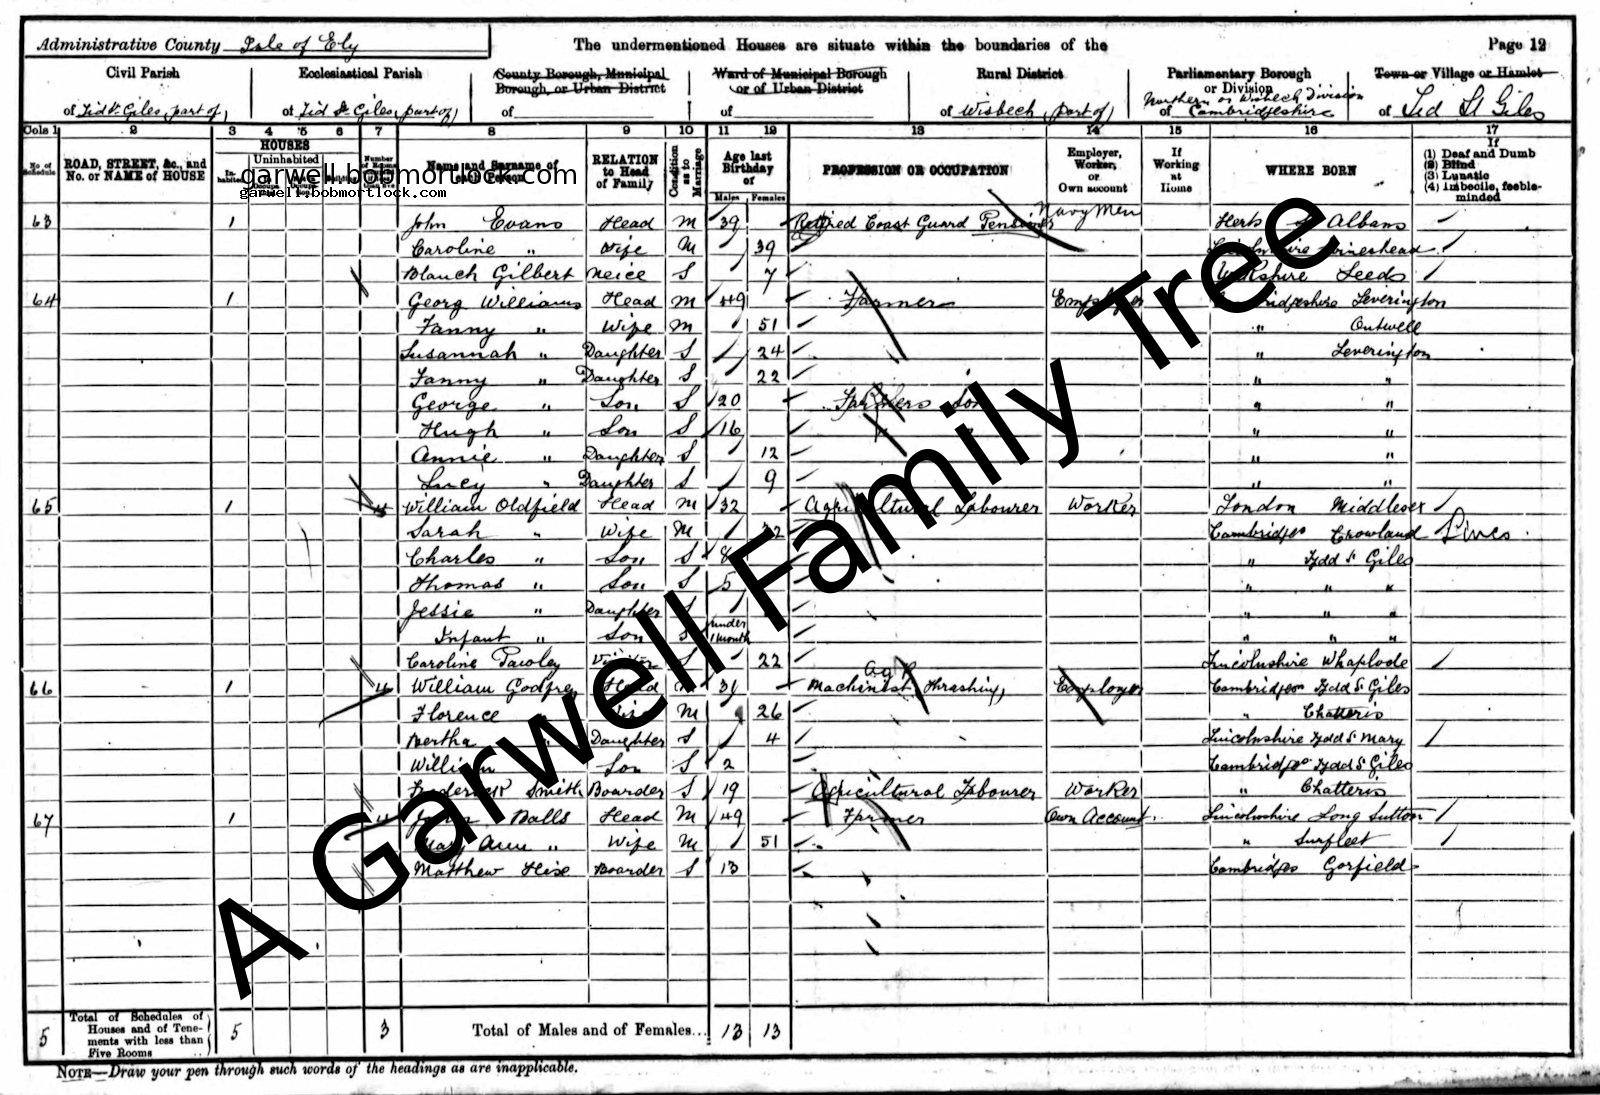 Administrative County Isle of Ely
The undermentioned Houses are situate within the boundaries of the
Page 12
Civil Parish
of Tid St Giles, part of
Ecclesiastical Parish
of Tid St Giles, part of
County Borough, Municipal Borough, or Urban District
of
Ward of Municipal Borough or of Urban District
of
Rural District
of Wisbech (part of)
Parliamentary Borough or Division
of Northern or Wisbech Division Cambridgeshire
Town or Village or Hamlet
of Tid St Giles
Cols 1 2 3 4 5 6 7 8 9 10 11 12 13 14 15 16 17
No. of Schedule
ROAD, STREET, &c., and No. or NAME of HOUSE
HOUSES
Uninhabited
Name and Surname of each Person
RELATION to Head of Family
Condition as to Marriage
Age last Birthday of
Males Females
PROFESSION OR OCCUPATION
Employer, Worker, or Own account
If Working at Home
WHERE BORN
If
(1) Deaf and Dumb
(2) Blind
(3) Lunatic
(4) Imbecile, feeble-minded
garwell.bobmortlock.com
garwell.bobmortlock.com
63 1 John Evans Head M 39 Retired Coast Guard Pensioner Navy Men Herts St Albans
Caroline " Wife M 39
Blanch Gilbert Neice S 7 Yorkshire Leeds
64 1 Georg Williams Head M 49 Farmer Employer Cambridgeshire Leverington
Fanny " Wife M 51 " Outwell
Susannah " Daughter S 24 " Leverington
Fanny " Daughter S 22 " "
George " Son S 20 Farmers Son " "
Hugh " Son S 16 " " " "
Annie " Daughter S 12 " "
Lucy " Daughter S 9 " "
65 1 4 William Oldfield Head M 32 Agricultural Labourer Worker London Middlesex
Sarah " Wife M Cambridges Crowland Lincs
Charles " Son S 8 " Tydd St Giles
Thomas " Son S 5 " " "
Jessie " Daughter S " " "
Infant " Son S under 1 month " " "
Caroline Pawley Visitor S 22 Lincolnshire Whaplode
66 1 4 William Godfrey Head M 31 Machinist Thrashing Ag Employer Cambridges Tydd St Giles
Florence Wife M 26 " Chatteris
Bertha Daughter S 4 Lincolnshire Tydd St Mary
William Son S 2 Cambridges Tydd St Giles
Frederick Smith Boarder S 19 Agricultural Labourer Worker " Chatteris
67 1 4 Balls Head M 49 Farmer Own Account Lincolnshire Long Sutton
Mary Ann " Wife M 51 " Surfleet
Matthew Hise Boarder S 13 Cambridges Gorefield
A Garwell Family Tree
5 Total of Schedules of Houses and of Tenements with less than Five Rooms 5 3 Total of Males and of Females... 13 13
NOTE—Draw your pen through such words of the headings as are inapplicable.